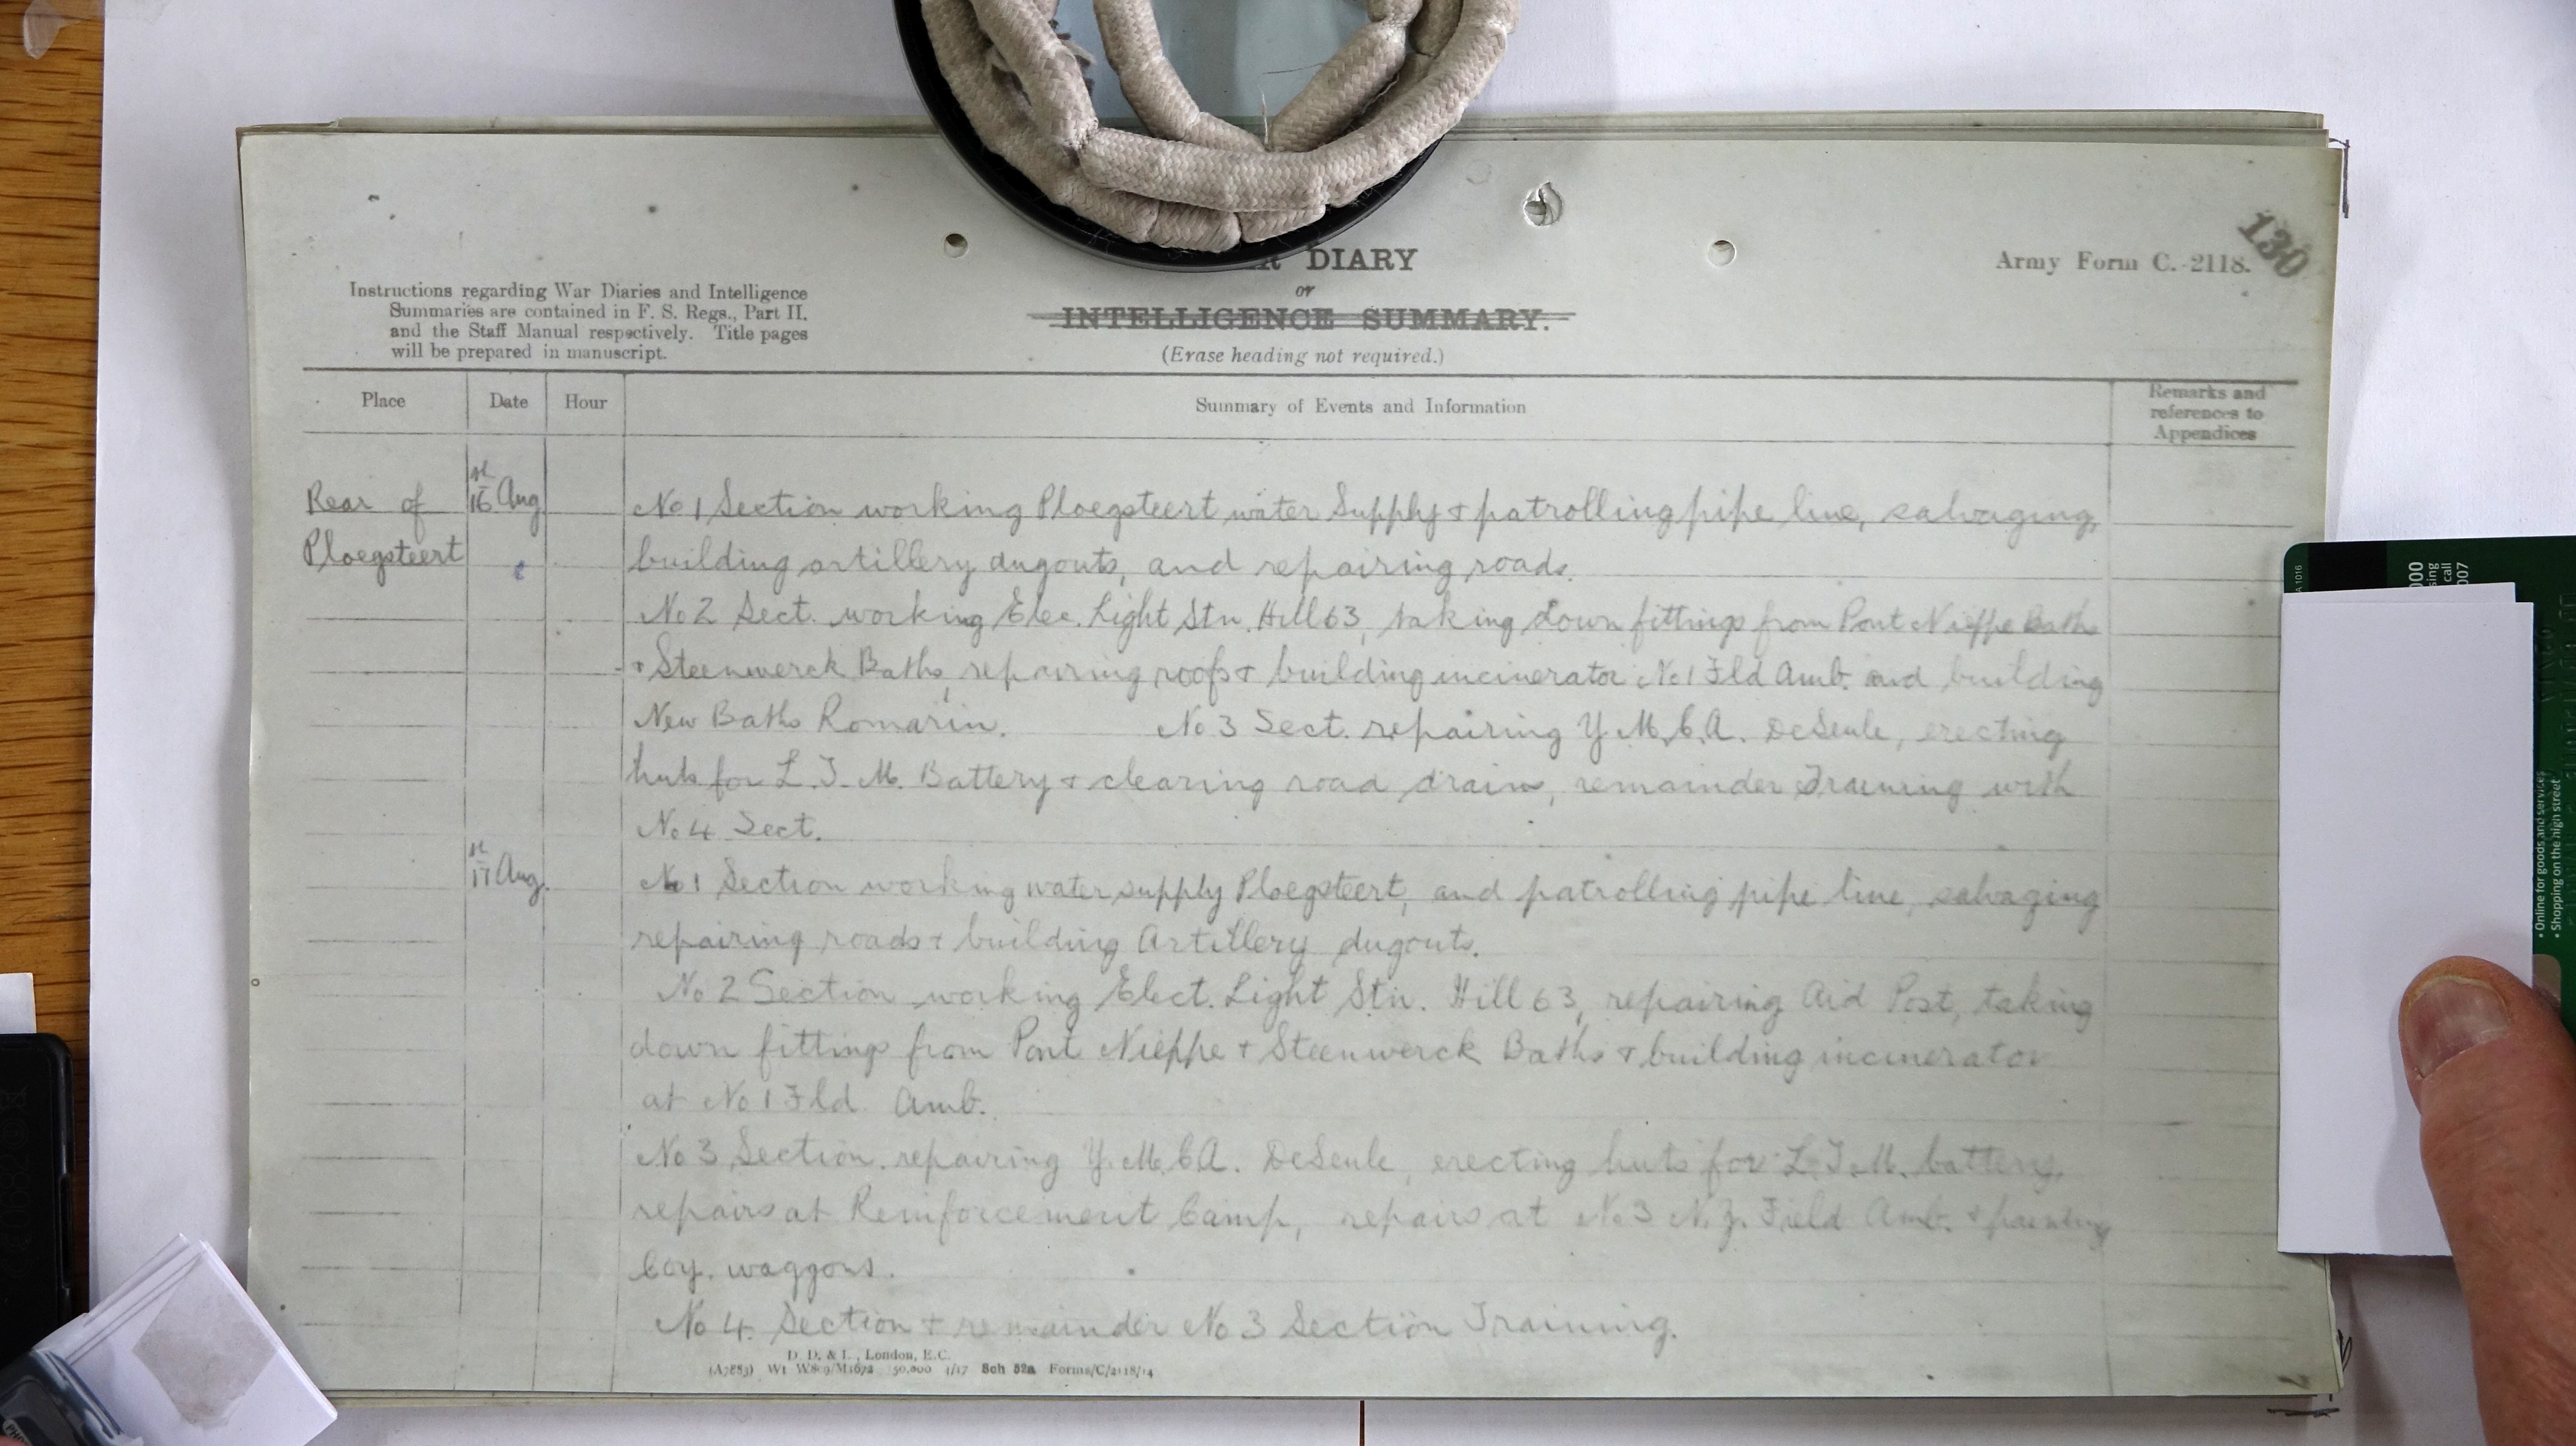 130
R DIARY
Army Form C. 2118.
or
INTELLIGENCE SUMMARY.
(Erase heading not required.)
Instructions regarding War Diaries and Intelligence
Summaries are contained in F. S. Regs., Part II.
and the Staff Manual respectively. Title pages
will be prepared in manuscript.
Place Date Hour Summary of Events and Information Remarks and
references to
Appendices
Rear of 16th Aug No 1 Section working Ploegsteert water Supply & patrolling pipe line, salvaging,
Ploegsteert building artillery dugouts, and repairing roads.
No 2 Sect. working Elec. Light Stn. Hill 63, taking down fittings from Pont Nieppe Baths
& Steenwerck Baths, repairing roofs & building incinerator No 1 Fld Amb. and building
New Baths Romarin. No 3 Sect. repairing Y.M.C.A. DeSeule, erecting
huts for L.T.M. Battery & clearing road drains, remainder Training with
No 4 Sect.
17th Aug. No 1 Section working water supply Ploegsteert, and patrolling pipe line, salvaging
repairing roads & building Artillery dugouts.
No 2 Section working Elect. Light Stn. Hill 63, repairing Aid Post, taking
down fittings from Pont Nieppe & Steenwerck Baths & building incinerator
at No 1 Fld Amb.
No 3 Section. repairing Y.M.C.A. DeSeule, erecting huts for L.T.M. battery,
repairs at Reinforcement Camp, repairs at No 3 N.Z. Field Amb. & painting
Coy. waggons.
No 4. Section & remainder No 3 Section Training.
D. D. & L., London, E.C.
(A7883) Wt W809/M1672 50,000 1/17 Sch 52a Forms/C/2118/14
1016
000
sing
call
007
• Online for goods and services
• Shopping on the high street